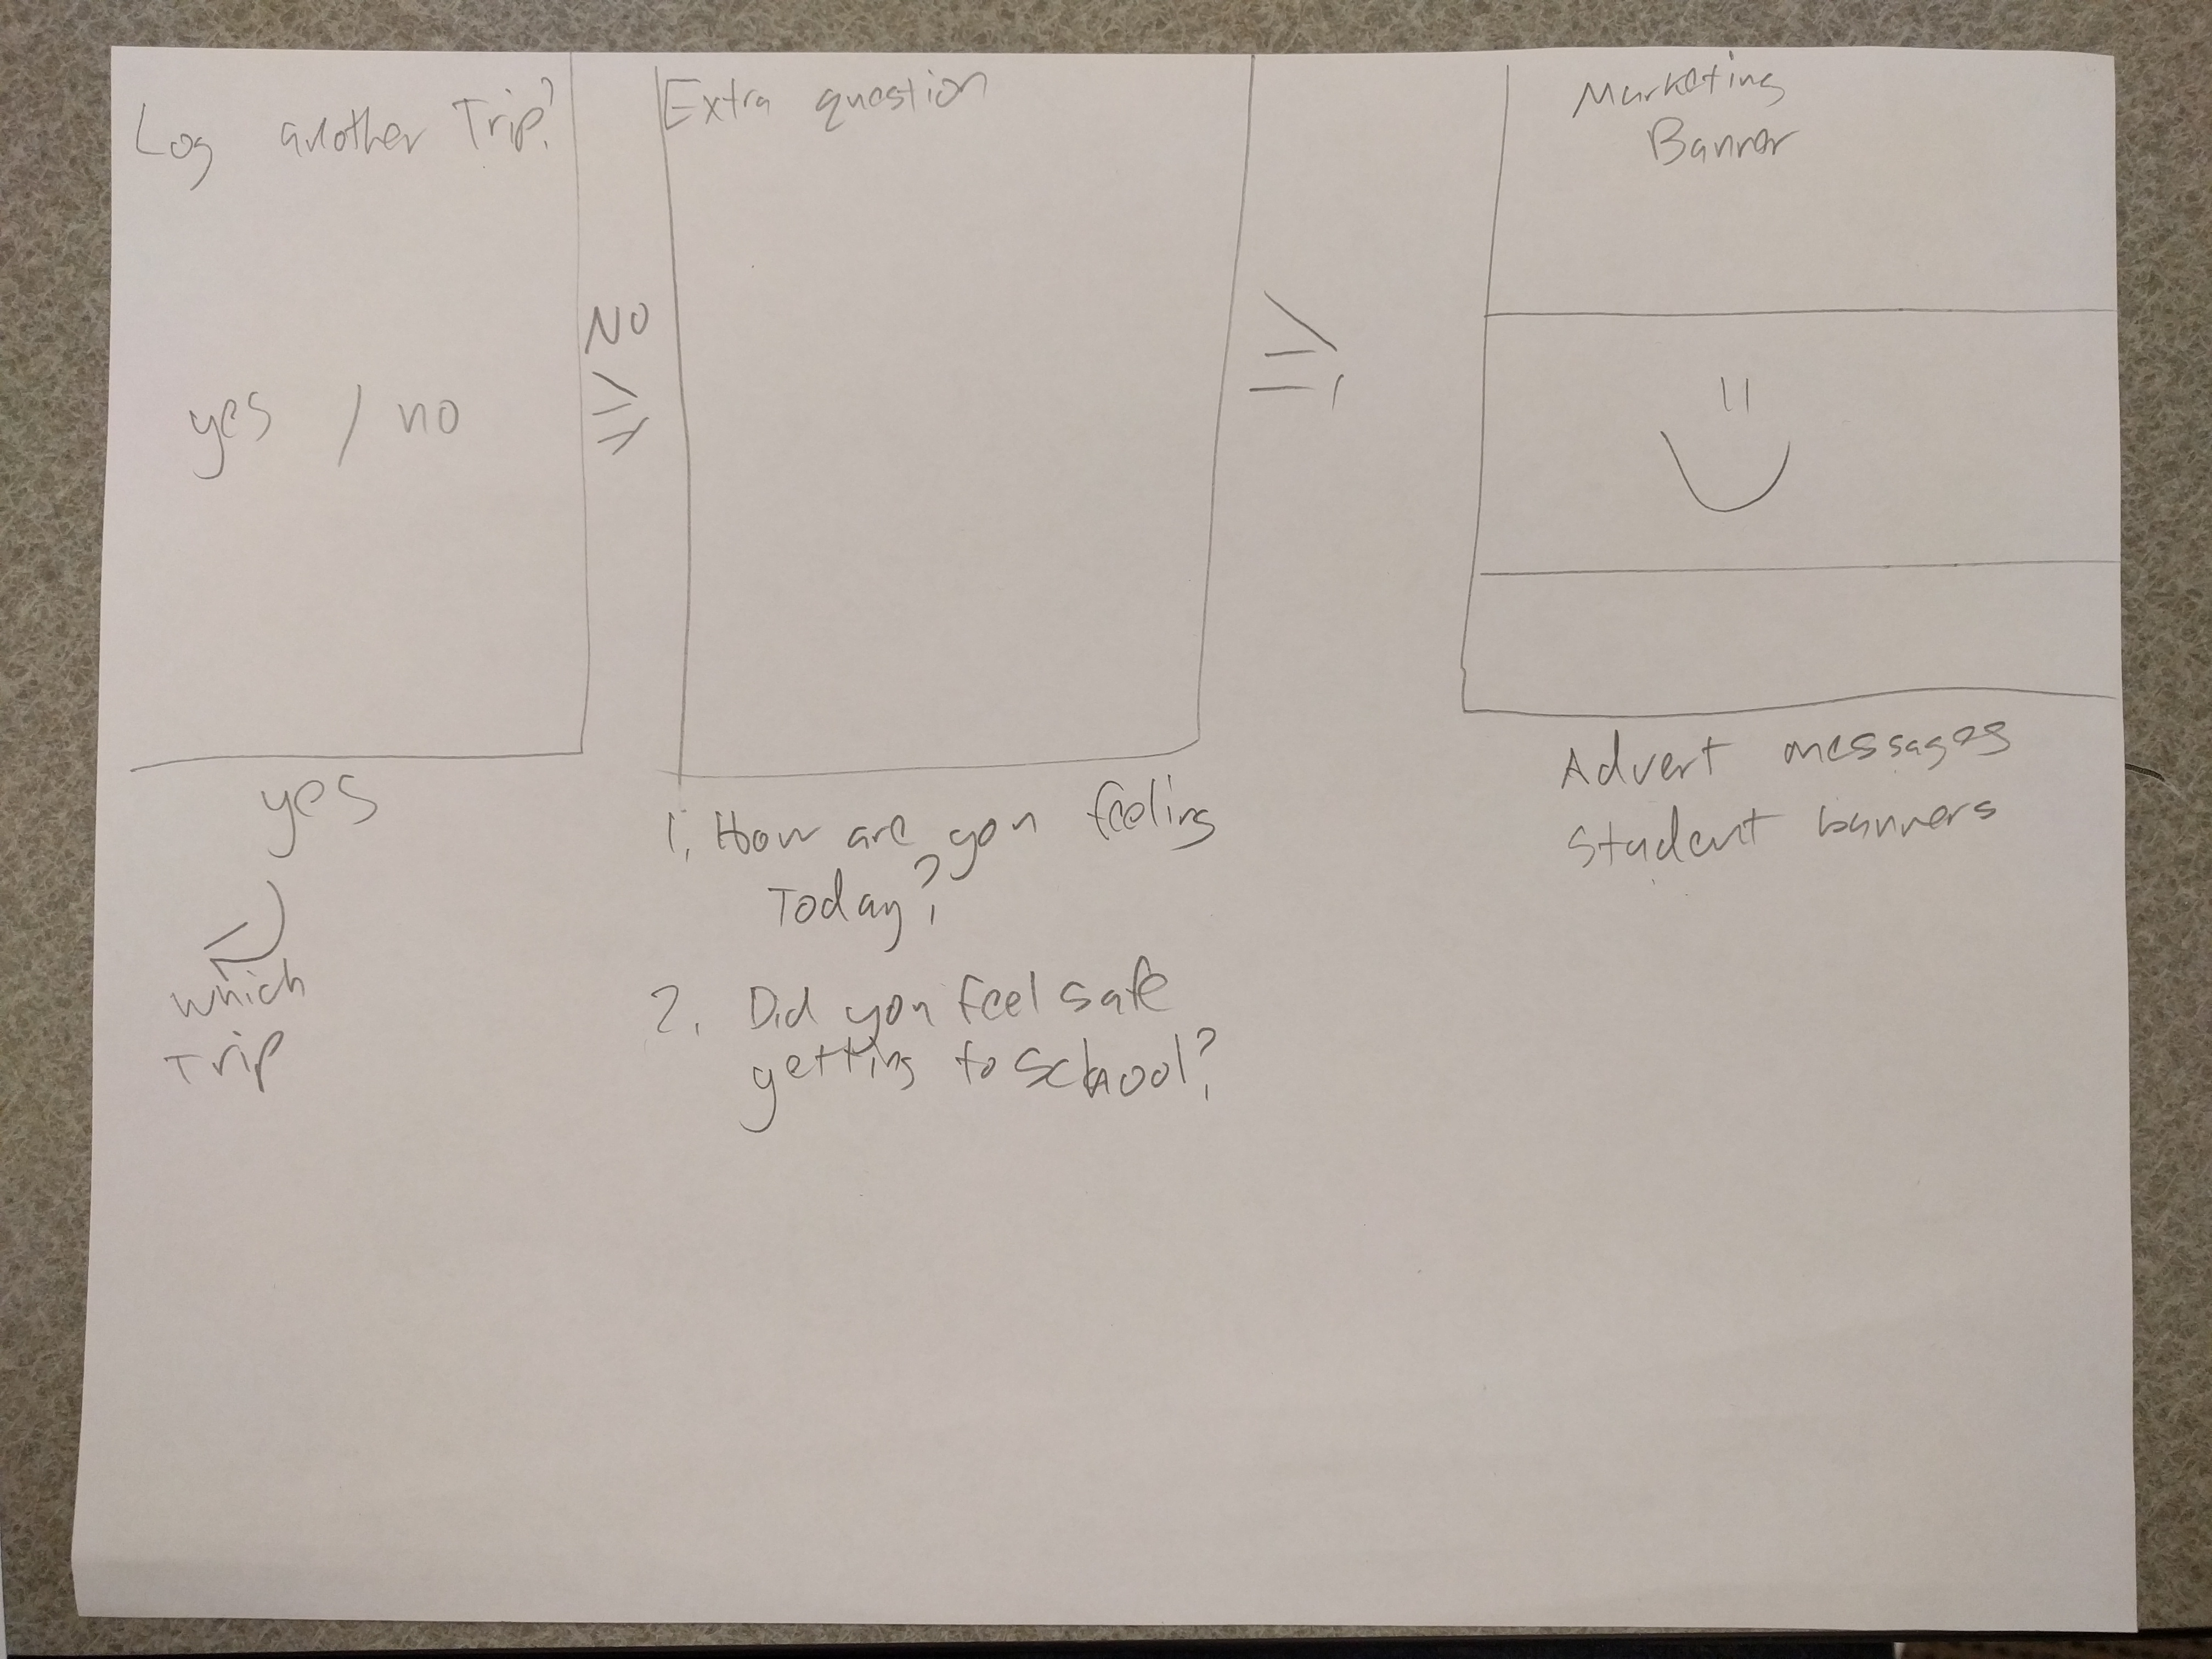 Log another Trip?
yes / no
NO
yes
which
Trip
Extra question
1. How are you feeling
Today?
2. Did you feel safe
getting to school?
Marketing
Banner
Advert messages
Student banners